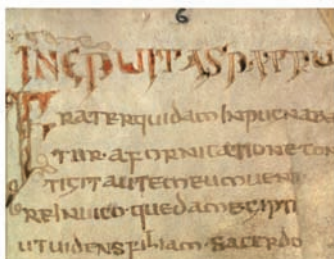 6
INCPUITASPATRU
FRATERQUIDAMINPUGNABA
TUR·AFORNICATIONE·CON
TIGITAUTEMEUMUENI
REINUICO·QUEDAMEGIPTI
UTUIDENSFILIAM·SACERDO